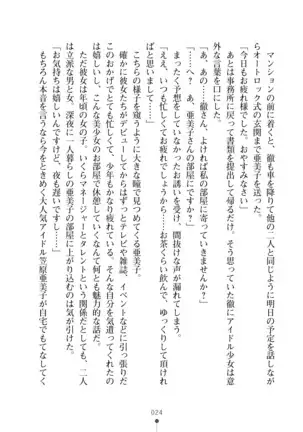 マンションの前に着くと、徹も車を降りて他の二人と同じように明日の予定を話しなが
らオートロック式の玄関まで亜美子を送り届ける。
「今日もお疲れ様でした。おやすみなさい」
あとは事務所に戻って書類を提出して帰るだけ。そう思っていた徹にアイドル少女は意
外な言葉を口にした。
「あ、あの……徹さん、よければ私の部屋に寄っていきませんか?」
「……へ? あ、亜美子さんの部屋に、ですか?」
まったく予想していなかったお誘いを受けて、間抜けな声が漏れてしまう。
「ええ、いつも忙しくてお疲れでしょうから……お茶くらい飲んで、ゆっくりして頂けれ
ばと思いまして」
こちらの様子を窺うように大きな瞳で見つめてくる亜美子。
確かに彼女たちがデビューしてからはずっとテレビや雑誌、イベントなどに引っ張りだ
こで忙しくしていたから、十作も年もかなり疲れている。そんな気を遣ってくれたことが
嬉しいし、こんな美少女のお部屋で休憩していくなんて何とも魅力的な話だ。
だけど彼女は年頃の女の子、いくらマネージャーとタレントという関係とはいえ、二人
は立派な男と女、深夜に一人暮らしの亜美子の部屋に上がり込むのは気が引けた。
「お気持ちは嬉しいんですけど、今夜も遅いですし……」
もちろん本音を言うなら今をときめく大人気アイドル笠原亜美子が自宅でもてなして
024